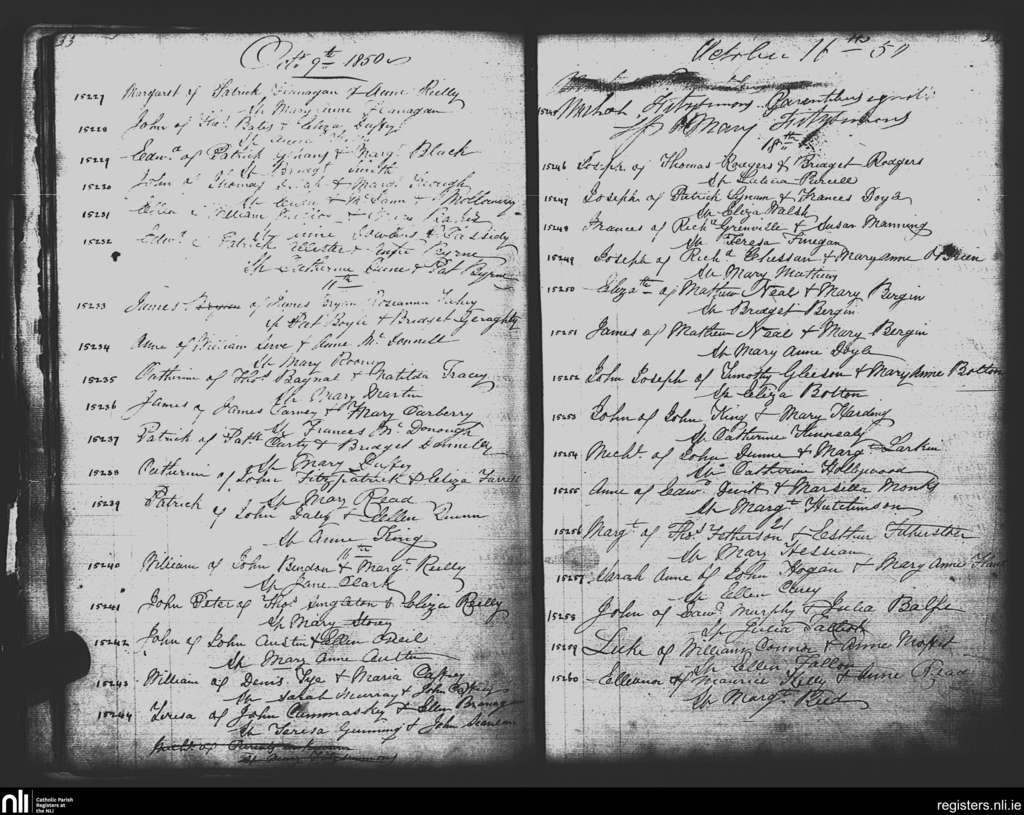 33
Oct. 9th 1850
15227 Margaret of Patrick Flanagan & Anne Reilly
Sp Mary Anne Flanagan
15228 John of Thos. Bates & Eliza Duffy
Sp
15229 Edwd. of Patrick & Margt. Black
Sp Bridgt Smith
15230 John of Thomas & Margt. Keough
Sp & McCann & Mollowny
15231 of William &
Sp Anne & Cassidy
15232 Edwd. of Patrick & Byrne
Sp Catherine & Pat Byrne
11th
15233 James of James Bryan Roseannah
Sp Pat Boyle & Bridget Geraghty
15234 Anne of William & Anne McDonnell
Sp Mary Rooney
15235 Catherine of Thos. Bagnal & Matilda Tracey
Sp Mary Martin
15236 James of James Carney & Mary Carberry
Sp Frances McDonough
15237 Patrick of Patk. Carty & Bridget Donnelly
Sp Mary Duffy
15238 Catherine of John Fitzpatrick & Eliza Farrell
Sp Mary Read
15239 Patrick of John Daly & Ellen Quinn
Sp Anne King
15240 William of John Bindon & Margt. Reilly
Sp Jane Clark
15241 John Peter of Thos. Singleton & Eliza Reilly
Sp Mary Storey
15242 John of John Austin & Ellen Neil
Sp Mary Anne Austin
15243 William of Denis Tye & Maria Caffrey
Sp Sarah Murray & John Caffrey
15244 Teresa of John Cummaskey & Ellen Branagan
Sp Teresa Gunning & John
of Parents unknown
Sp Mary Fitzsimmons
October 16th 50
15245 Michal. Fitzsimons Parentibus ignotis
Sp Mary Fitzsimons
18th
15246 Joseph of Thomas Rodgers & Bridget Rodgers
Sp Leticia Purcell
15247 Joseph of Patrick Lynam & Frances Doyle
Sp Eliza Walsh
15248 Frances of Richd. Grenville & Susan Manning
Sp Teresa Finegan
15249 Joseph of Richd. Glessan & Mary Anne O'Brien
Sp Mary Mathews
15250 Elizath. of Mathew Neal & Mary Bergin
Sp Bridget Bergin
15251 James of Mathew Neal & Mary Bergin
Sp Mary Anne Doyle
15252 John Joseph of Timothy Gleeson & Mary Anne Bolton
Sp Eliza Bolton
15253 John of John King & Mary Harding
Sp Catherine Kennealy
15254 Michl. of John Dunne & Margt. Larkin
Sp Catherine Hollywood
15255 Anne of Edwd. & Marsella Monks
Sp Margt. Hutchinson
21
15256 Margt. of Thos. Fetherson & Esther Fetherston
Sp Mary Hessian
15257 Sarah Anne of John Hogan & Mary Anne
Sp Ellen
15258 John of Edwd. Murphy & Julia Balfe
Sp Julia Talbot
15259 Luke of William Connor & Anne Moffit
Sp Ellen Fallon
15260 Elleanor of Maurice Kelly & Anne Read
Sp Margt. Reed
nli
Catholic Parish
Registers at
the NLI
registers.nli.ie